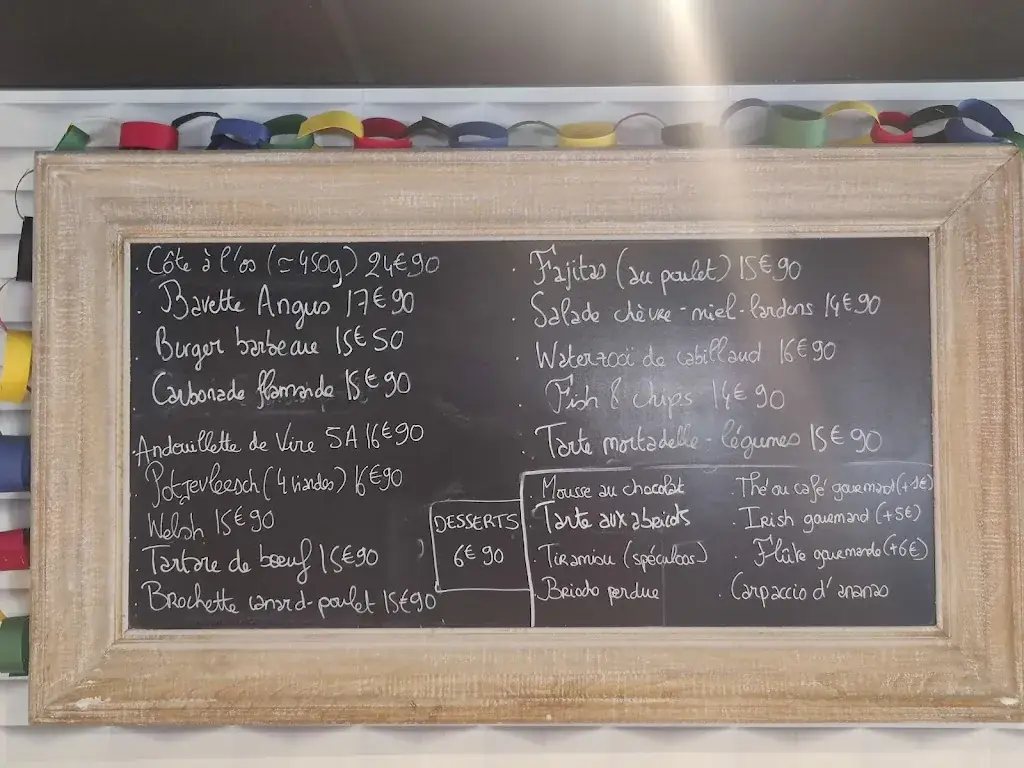 . Côte à l'os (≃ 450g) 24€90
. Bavette Angus 17€90
. Burger barbecue 15€50
. Carbonade flamande 15€90
. Andouillette de Vire 5A 16€90
. Potjevleesch (4 viandes) 16€90
. Welsh 15€90
. Tartare de bœuf 15€90
. Brochette canard-poulet 15€90
. Fajitas (au poulet) 15€90
. Salade chèvre-miel-lardons 14€90
. Waterzoï de cabillaud 16€90
. Fish & chips 14€90
. Tarte mortadelle-légumes 15€90
DESSERTS
6€90
. Mousse au chocolat
. Tarte aux abricots
. Tiramisu (spéculoos)
. Brioche perdue
. Thé ou café gourmand (+1€)
. Irish gourmand (+5€)
. Flûte gourmande (+6€)
. Carpaccio d'ananas